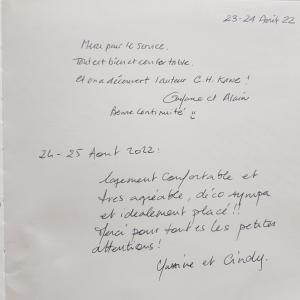 23-24 Août 22
Merci pour le service.
Tout est bien et confortable.
Et on a découvert l'auteur C.H. Kane !
et Alain
Bonne continuité
24-25 Aout 2022:
logement confortable et
très agréable, déco sympa
et idéalement placé!!
Merci pour toutes les petites
attentions!
et Cindy.